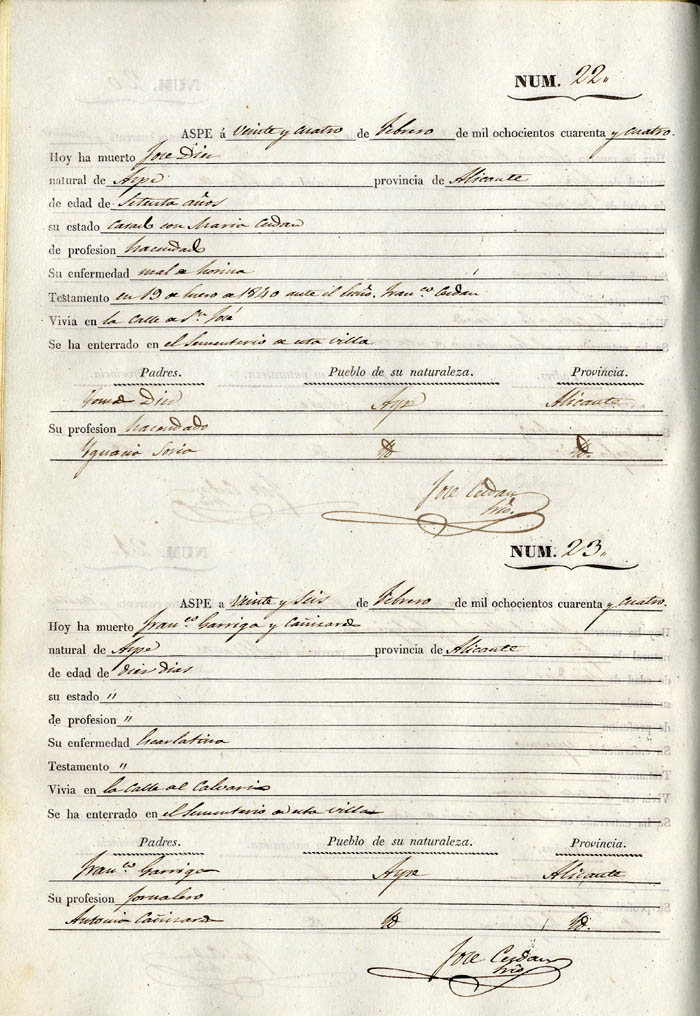 NUM. 22.
ASPE á Veinte y Cuatro de Febrero de mil ochocientos cuarenta y Cuatro.
Hoy ha muerto Jose Diez
natural de Aspe provincia de Alicante
de edad de Setenta años
su estado Casado con Maria Cerdan
de profesion hacendado
Su enfermedad mal de horina
Testamento en 19 de Enero de 1840 ante el Esno. Franco. Cerdan
Vivia en la Calle de Sn. José
Se ha enterrado en el Sementerio de esta villa
Padres. Pueblo de su naturaleza. Provincia.
Diez Aspe Alicante
Su profesion hacendado
Ygnacia Soria Yd Yd.
Jose Cerdan
Srio.
NUM. 23.
ASPE a Veinte y Seis de Febrero de mil ochocientos cuarenta y Cuatro.
Hoy ha muerto Franco. Garrigo y Cañizares
natural de Aspe provincia de Alicante
de edad de diez dias
su estado "
de profesion "
Su enfermedad Escarlatina
Testamento "
Vivia en la Calle del Calvario
Se ha enterrado en el Sementerio de esta villa
Padres. Pueblo de su naturaleza. Provincia.
Franco. Garrigo Aspe Alicante
Su profesion Jornalero
Antonia Cañizares Yd Yd.
Jose Cerdan
Srio